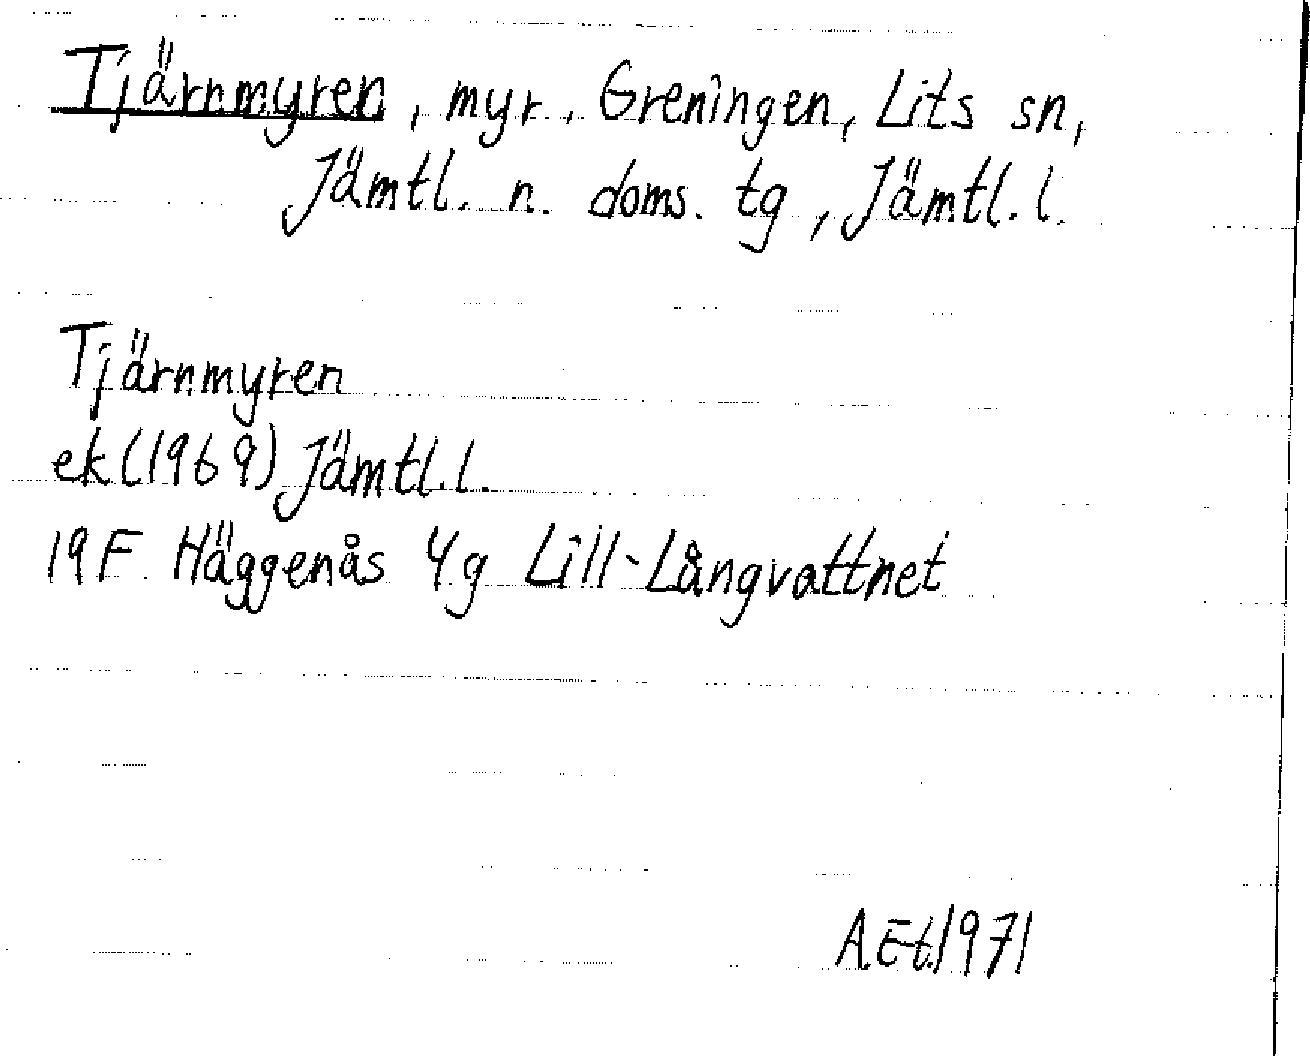 Tjärnmyren, myr, Greningen, Lits sn,
Jämtl. n. doms. tg, Jämtl. l.
Tjärnmyren
ek (1969) Jämtl. l.
19F Häggenås 4g Lill-Långvattnet
A.Et.1971